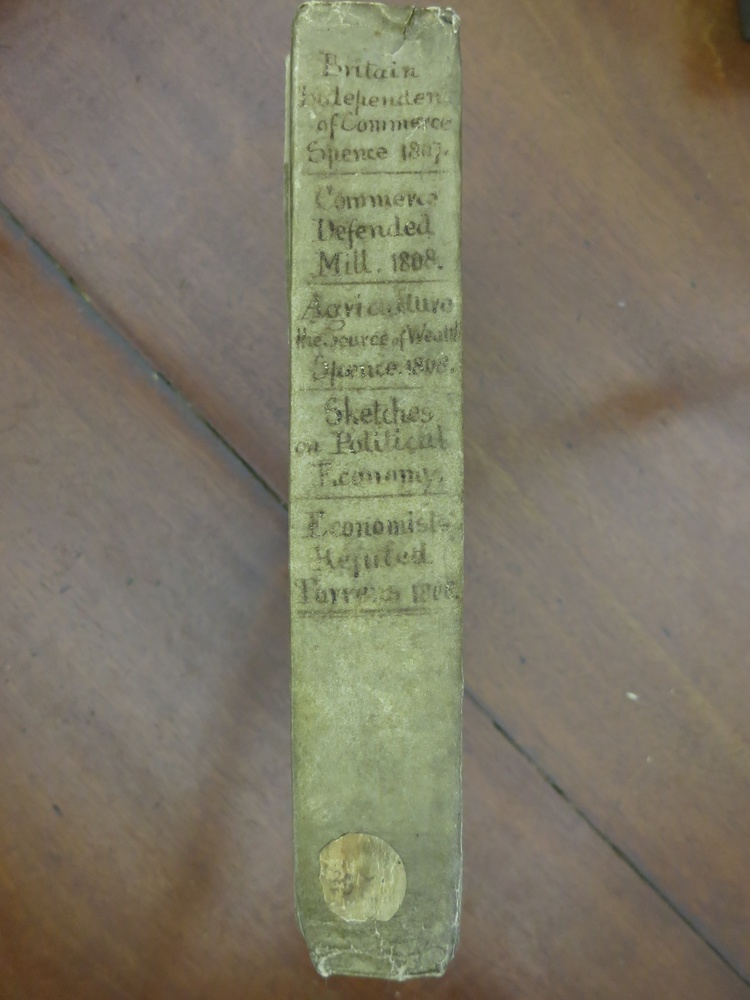 Britain
Independent
of Commerce
Spence 1807.
Commerce
Defended
Mill. 1808.
Agriculture
the Source of Wealth
Spence. 1808.
Sketches
on Political
Economy.
Economists
Refuted
Torrens 1808.